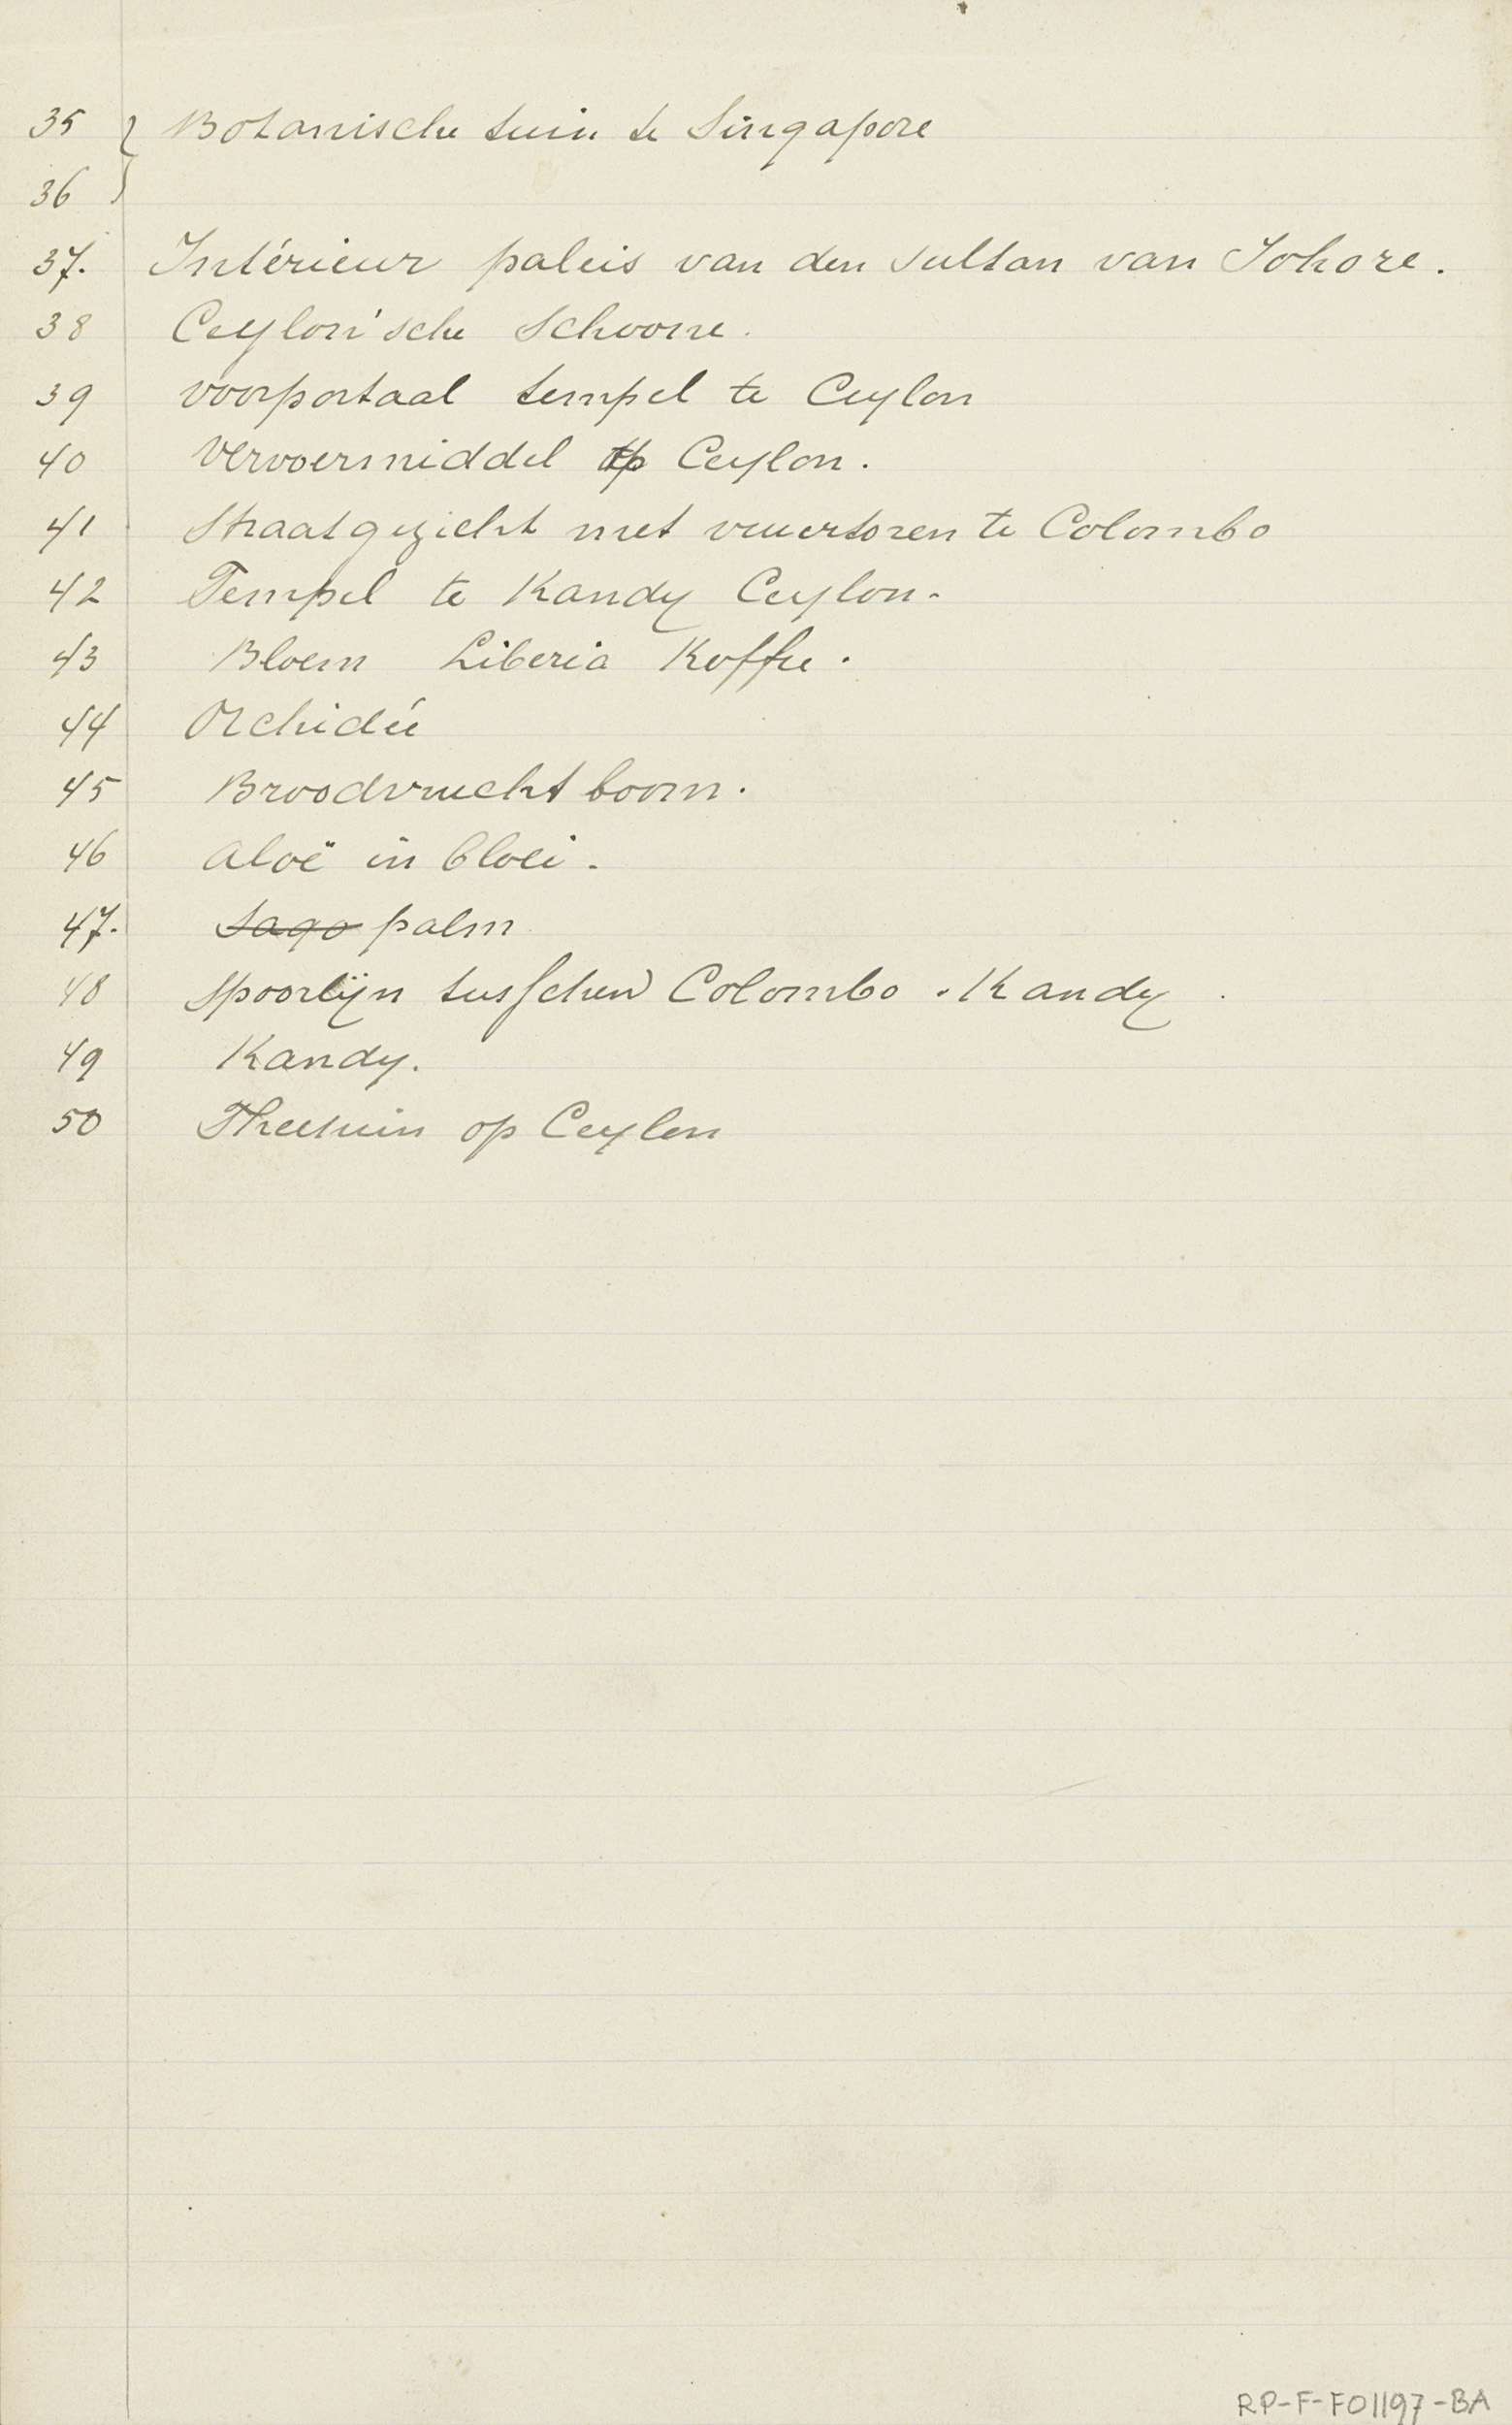 35 } Botanische tuin te Singapore
36
37. Intérieur paleis van den sultan van Johore.
38 Ceylon'sche Schoone.
39 voorportaal tempel te Ceylon
40 Vervoermiddel op Ceylon.
41 Straatgezicht met vuurtoren te Colombo
42 Tempel te Kandy Ceylon.
43 Bloem Liberia Koffie.
44 Orchidée
45 Broodvrucht boom.
46 Aloë in bloei.
47. Sago palm
48 Spoorlijn tusschen Colombo. Kandy
49 Kandy.
50 Theetuin op Ceylon
RP-F-F01197-BA